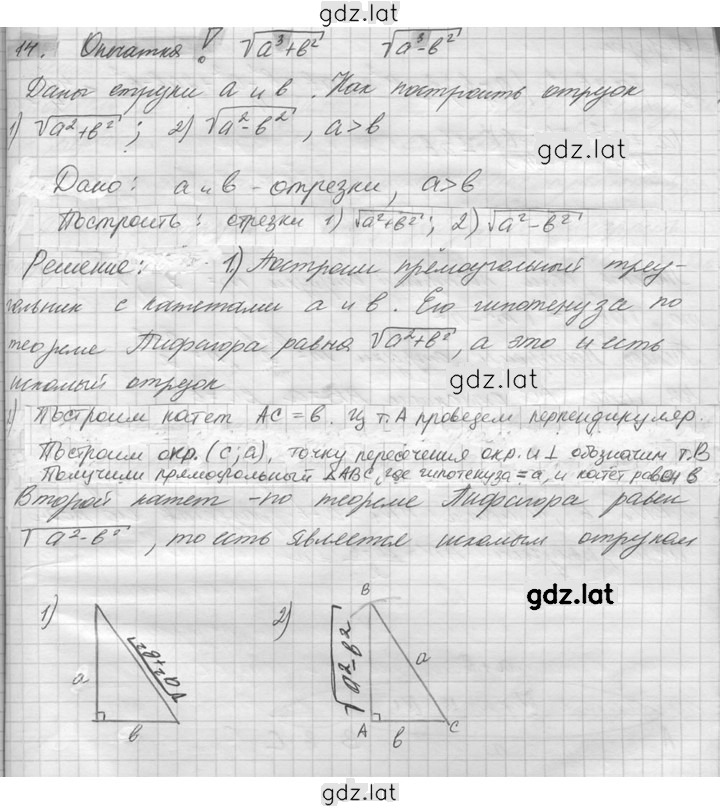 gdz.lat
14. Опечатка! √a³+b² √a³-b²
Даны отрезки a и b. Как построить отрезок
1) √a²+b²; 2) √a²-b², a>b
gdz.lat
Дано: a и b - отрезки, a>b
Построить: отрезки 1) √a²+b²; 2) √a²-b²
Решение: 1) Построим прямоугольный треу-
гольник с катетами a и b. Его гипотенуза по
теореме Пифагора равна √a²+b², а это и есть
искомый отрезок
gdz.lat
) Построим катет AC = b. Из т.A проведем перпендикуляр.
Построим окр. (c; a), точку пересечения окр. и ⊥ обозначим т.B
Получим прямоугольный △ABC, где гипотенуза = a, и катет равен b
Второй катет - по теореме Пифагора равен
√a²-b², то есть является искомым отрезком
gdz.lat
1) a b √a²+b²
2) B √a²-b² a A b C
gdz.lat